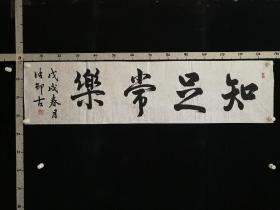 知足常樂
戊戌春月